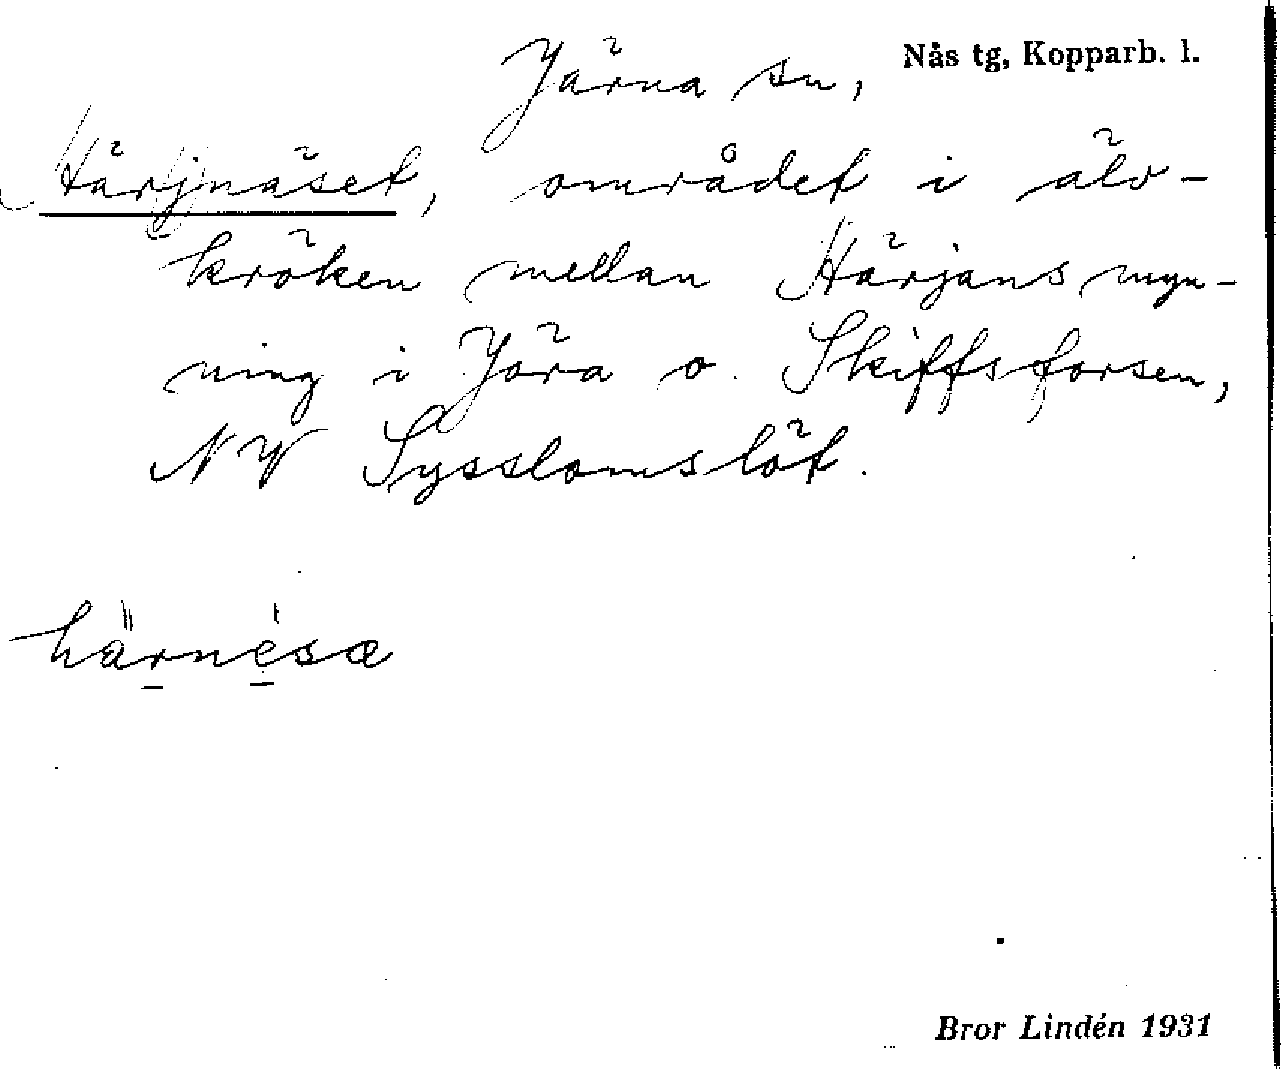 Järna sn, Nås tg, Kopparb. l.
Härjnäset, området i älv-
kröken mellan Härjans myn-
ning i Jöra o. Skiffsforsen,
NV Sysslomslöt.
härnèsæ
Bror Lindén 1931